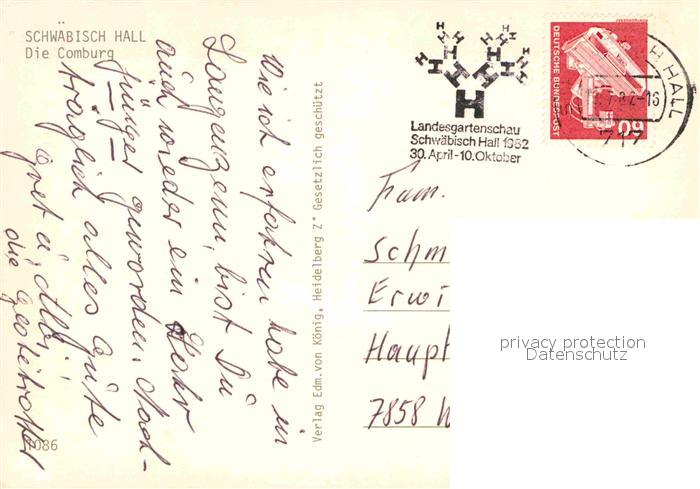 SCHWÄBISCH HALL
Die Comburg
Wie ich erfahren habe in
Langenzenn, bist Du
auch wieder ein Jahr
jünger geworden. Nach-
träglich alles Gute
die
1086
Verlag Edm.von König, Heidelberg Z* Gesetzlich geschützt
H H H H H H H
Landesgartenschau
Schwäbisch Hall 1982
30. April-10. Oktober
DEUTSCHE BUNDESPOST
60
H HALL
717
Fam.
Schm
Erwi
Haupt
7858 W
privacy protection
Datenschutz